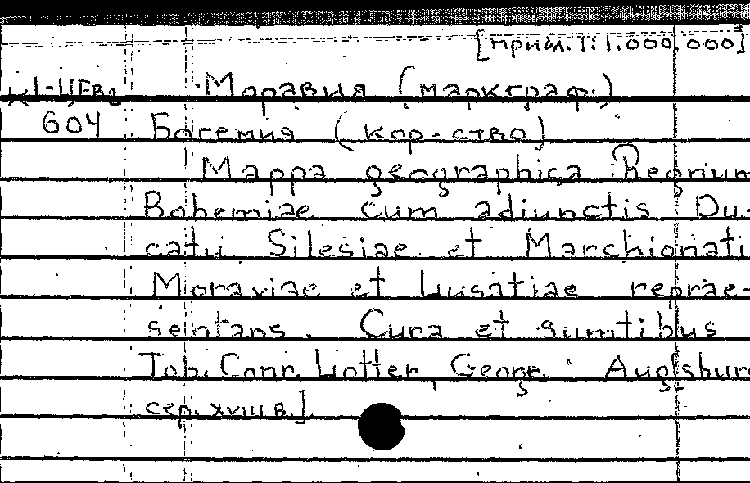 [прим. 1:1.000.000]
Моравия (маркграф.)
604 Богемия (кор-ство)
Mappa geographica Regnium
Bohemiae cum adiunctis Du-
catu Silesiae et Marchionati
Moraviae et Lusatiae reprae-
sentans. Cura et sumtibus
Tob. Conr. Lotter, Geogr. Augsburg
сер. XVIII в.]